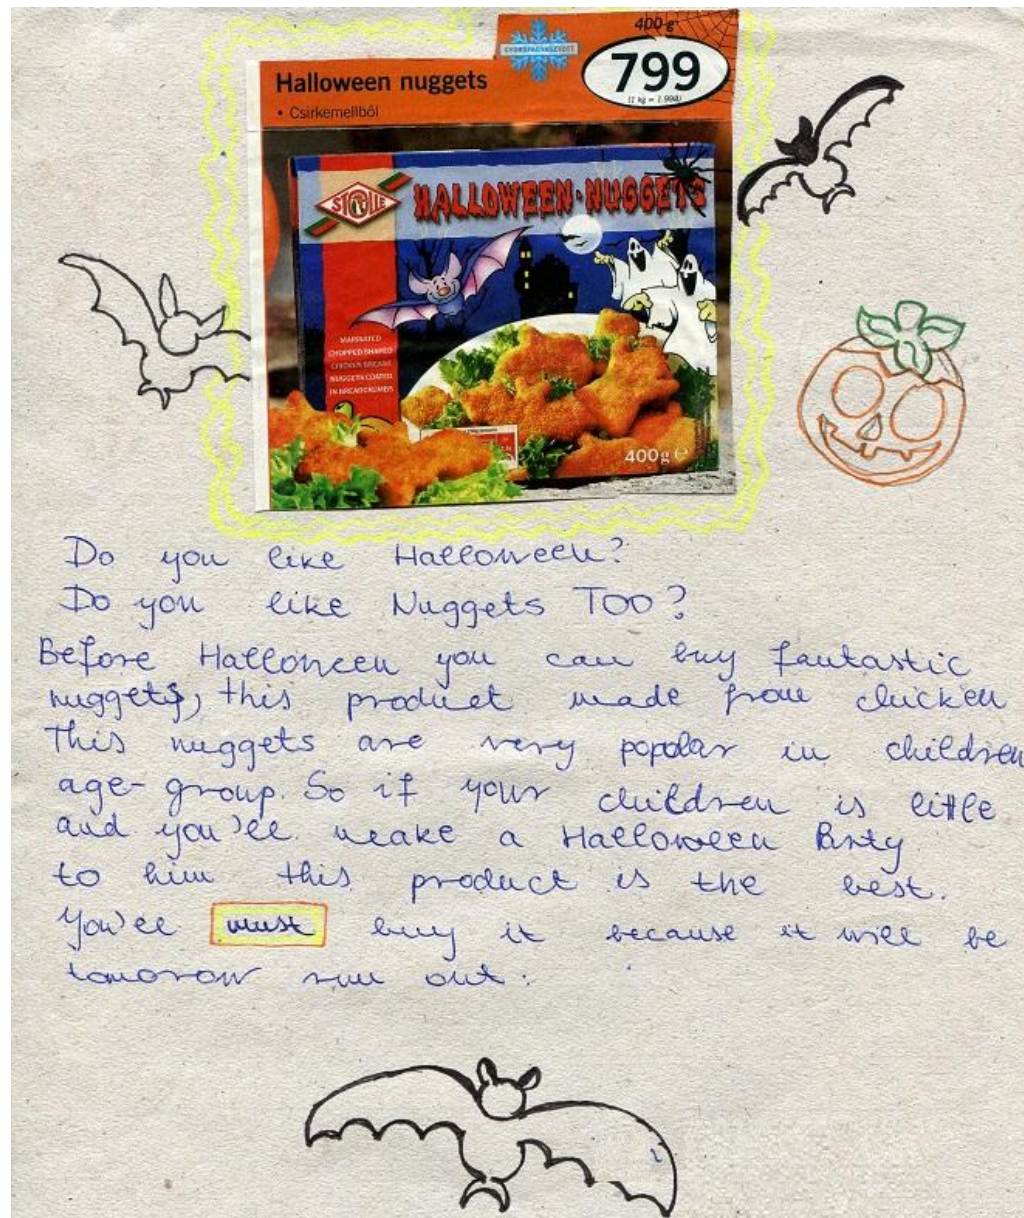 400 g
GYORSFAGYASZTOTT
799
(1 kg = 1.998)
Halloween nuggets
• Csirkemellből
STOLLE
HALLOWEEN-NUGGETS
MARINATED
CHOPPED SHAPED
CHICKEN BREAST
NUGGETS COATED
IN BREADCRUMBS
400g e
Do you like Halloween?
Do you like Nuggets TOO?
Before Halloween you can buy fantastic
nuggets, this product made from chicken
This nuggets are very popolar in children
age-group. So if your children is little
and you'll make a Halloween Party
to him this product is the best.
You'll must buy it because it will be
tomorow run out.